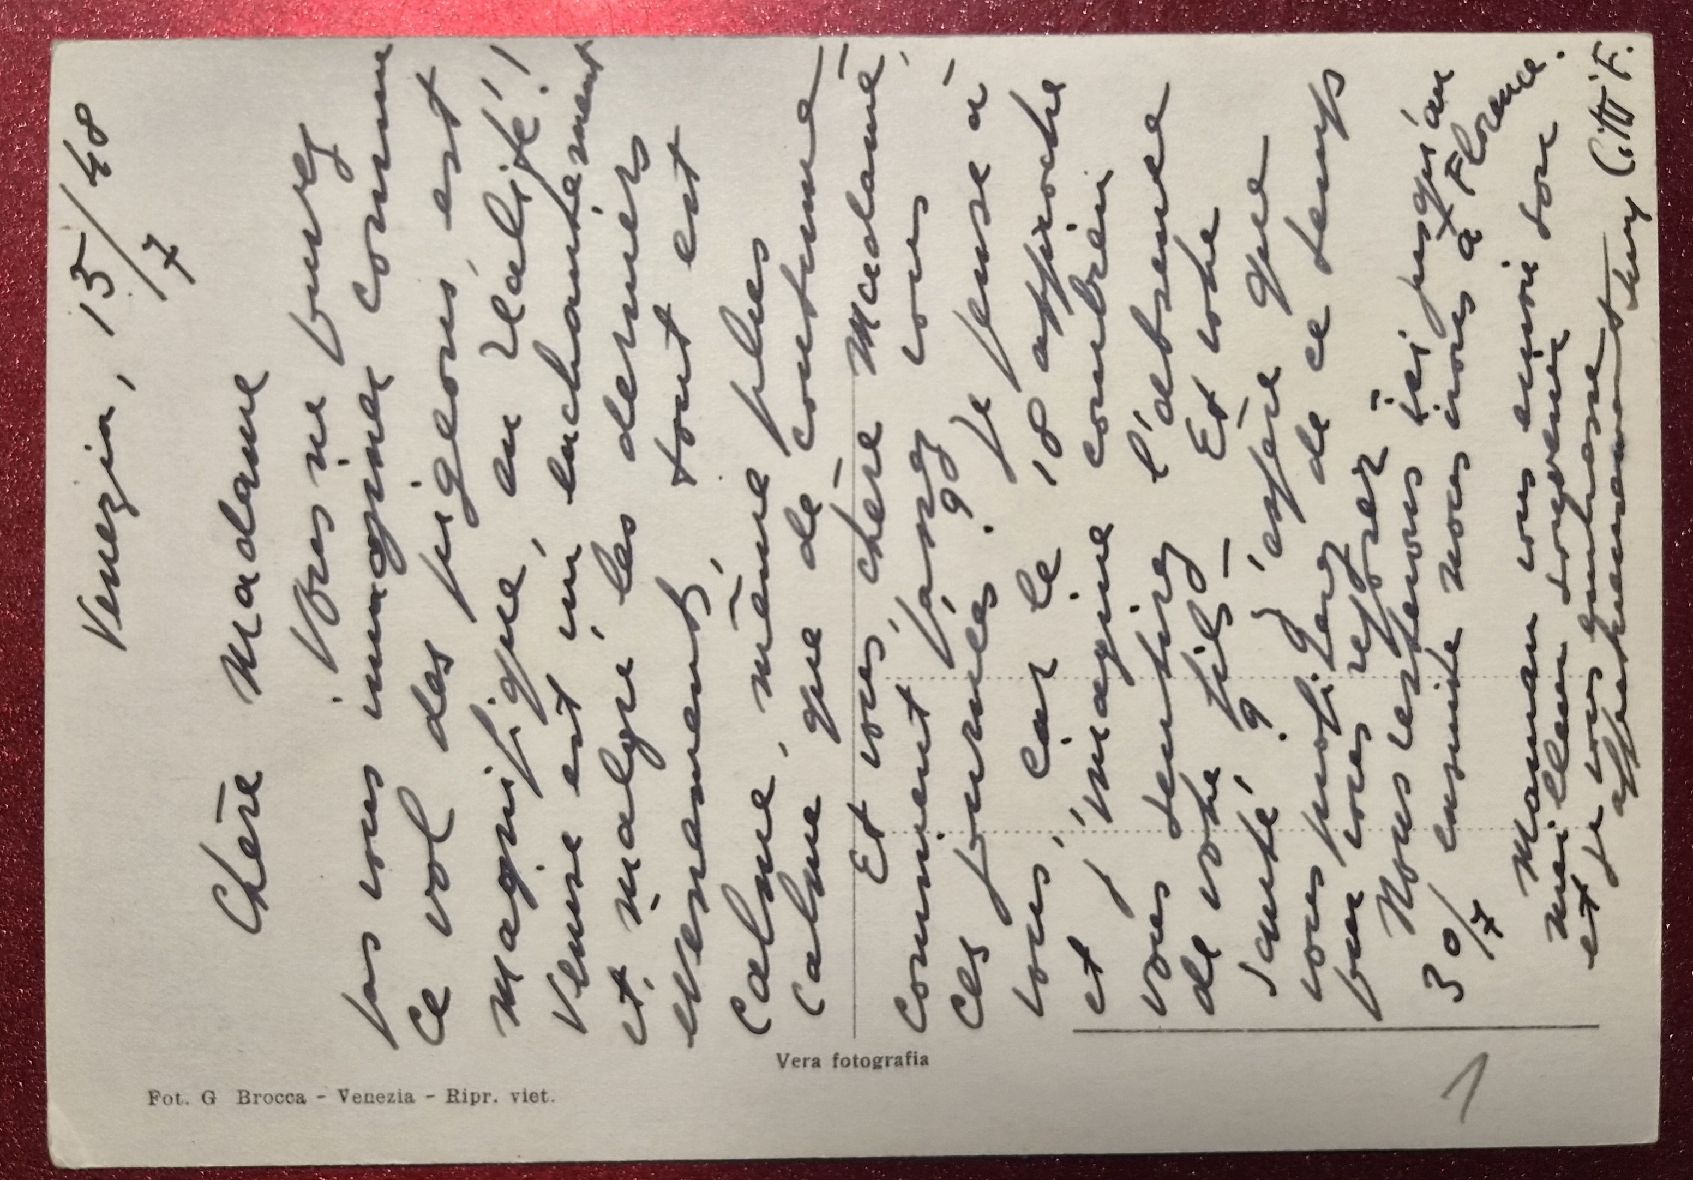 Venezia, 15/7 48
Chère Madame
Vous ne pouvez
pas vous imaginer comme
ce vol des pigeons, est
magnifique, en réalité!
Venise est un enchantement
et, malgré les derniers
évènements, tout est
calme, même plus
calme que de coutume
Et vous, chère Madame,
comment passez vous
ces journées? Je pense à
vous, car le 18 approche
et j'imagine combien
vous sentirez l'absence
de votre fils. Et votre
santé? J'espère que
vous profiterez de ce temps
pour vous reposer.
Nous resterons ici jusqu'au
30/7 ensuite nous irons à Florence.
Maman vous envoie son
meilleur souvenir
et je vous embrasse
affectueusement
Fot. G Brocca - Venezia - Ripr. viet.
Vera fotografia
1